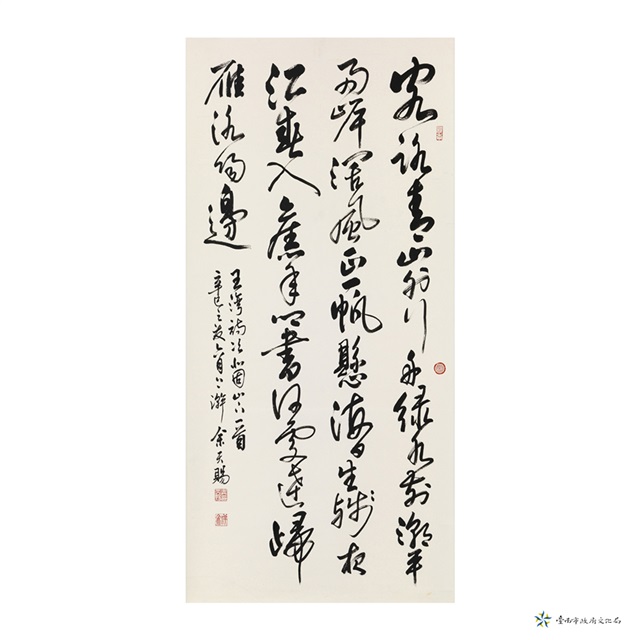 客路青山外行舟綠水前潮平
兩岸闊風正一帆懸海日生殘夜
江春入舊年鄉書何處達歸
雁洛陽邊
王灣詩次北固山下一首
辛巳之歲六月上澣 余天賜
臺南市政府文化局